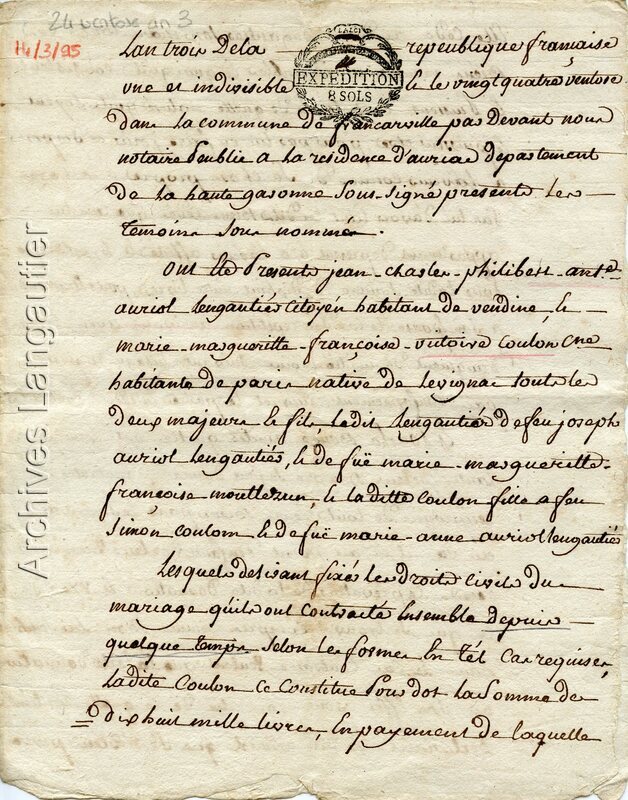 24 ventose an 3
14/3/95
EXPEDITION
8 SOLS
Lan trois de la republique francaise
une et indivisible & le vingt quatre ventose
dans la commune de francarville par devant nous
notaire publie a la residence d'auriac departement
de la haute garonne sous-signé presents les
temoins sous nommés.
Ont été presents jean-charles-philibert-ant.e
auriol lengautiés citoyen habitant de vendine, &
marie-margueritte-françoise-victoire coulon cne
habitante de paris native de levignac touts les
deux majeurs & fils, ledit lengautiés de feu joseph
auriol lengautiés, & de füe marie-margueritte-
françoise montlezun, & laditte coulon fille a feu
simon coulom & de füe marie-anne auriol lengautiés
Lesquels desirant fixés les droits civils du
mariage qu'ils ont contracté ensemble depuis
quelque temps selon les formes en tél cas requises,
ladite coulon ce constitue pour dot la somme de
dix huit mille livres, en payement de laquelle
Archives Langautier